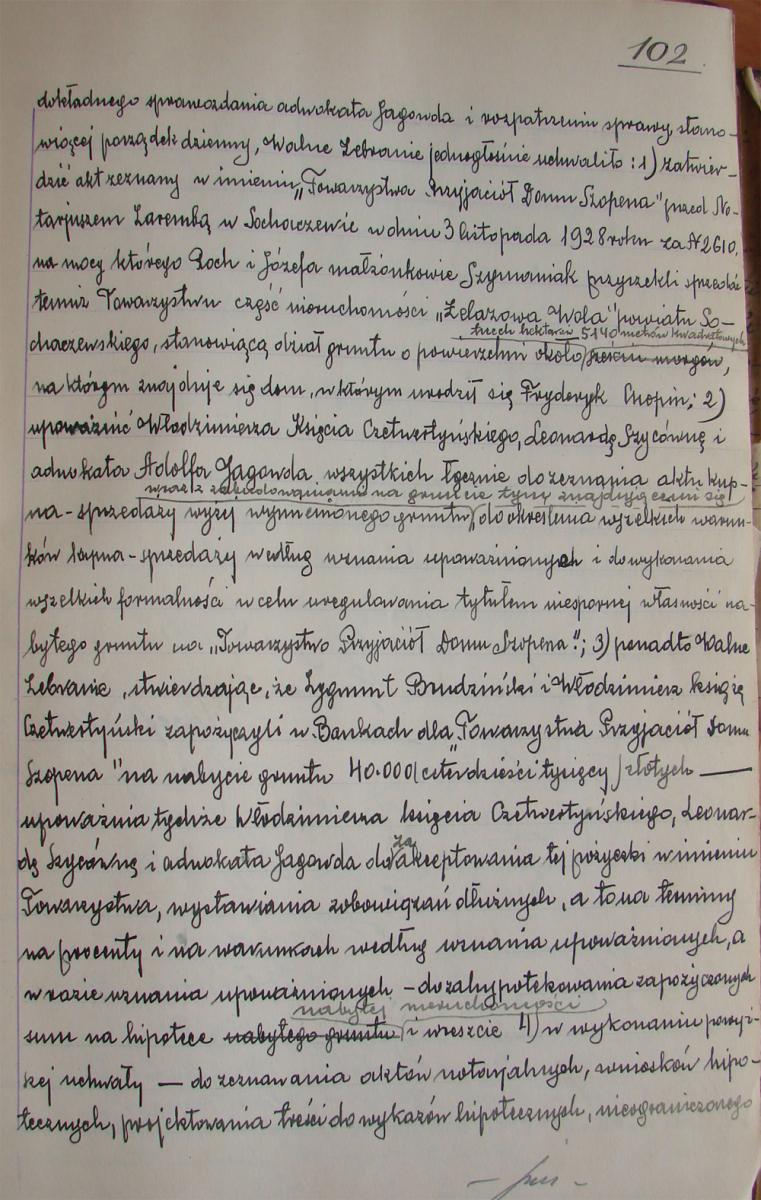 102
dokładnego sprawozdania adwokata Jagowda i rozpatrzeniu sprawy, stano-
wiącej porządek dzienny, Walne Zebranie jednogłośnie uchwaliło: 1) zatwier-
dzić akt zeznany w imieniu „Towarzystwa Przyjaciół Domu Szopena" przed No-
tarjuszem Zarembą w Sochaczewie w dniu 3 listopada 1928 roku za № 2610,
na mocy którego Roch i Józefa małżonkowie Szymaniak przyrzekli sprzedać
temuż Towarzystwu część nieruchomości „Żelazowa Wola" powiatu So-
trzech hektarów 5140 metrów kwadratowych
chaczewskiego, stanowiącą dział gruntu o powierzchni około sześciu morgów,
na którym znajduje się dom, w którym urodził się Fryderyk Chopin; 2)
upoważnić Włodzimierza Księcia Czetwertyńskiego, Leonardę Szycównę i
adwokata Adolfa Jagowda wszystkich łącznie do zeznania aktu kup-
wraz z zabudowaniami na gruncie tym znajdującemi się
na-sprzedaży wyżej wymienionego gruntu, do określenia wszelkich warun-
ków kupna-sprzedaży według uznania upoważnionych i do wykonania
wszelkich formalności w celu uregulowania tytułem niespornej własności na-
bytego gruntu na „Towarzystwo Przyjaciół Domu Szopena"; 3) ponadto Walne
Zebranie, stwierdzając, że Zygmunt Brudziński i Włodzimierz książę
Czetwertyński zapożyczyli w Bankach dla „Towarzystwa Przyjaciół Domu
Szopena" na nabycie gruntu 40.000 (czterdzieści tysięcy) złotych —
upoważnia tychże Włodzimierza księcia Czetwertyńskiego, Leonar-
za
dę Szycównę i adwokata Jagowda do akceptowania tej pożyczki w imieniu
Towarzystwa, wystawiania zobowiązań dłużnych, a to na terminy
na procenty i na warunkach według uznania upoważnionych, a
w razie uznania upoważnionych - do zahypotekowania zapożyczonych
nabytej nieruchomości
sum na hipotece nabytego gruntu i wreszcie 4) w wykonaniu powyż-
szej uchwały — do zeznawania aktów notarjalnych, wniosków hipo-
tecznych, projektowania treści do wykazów hipotecznych, nieograniczonego